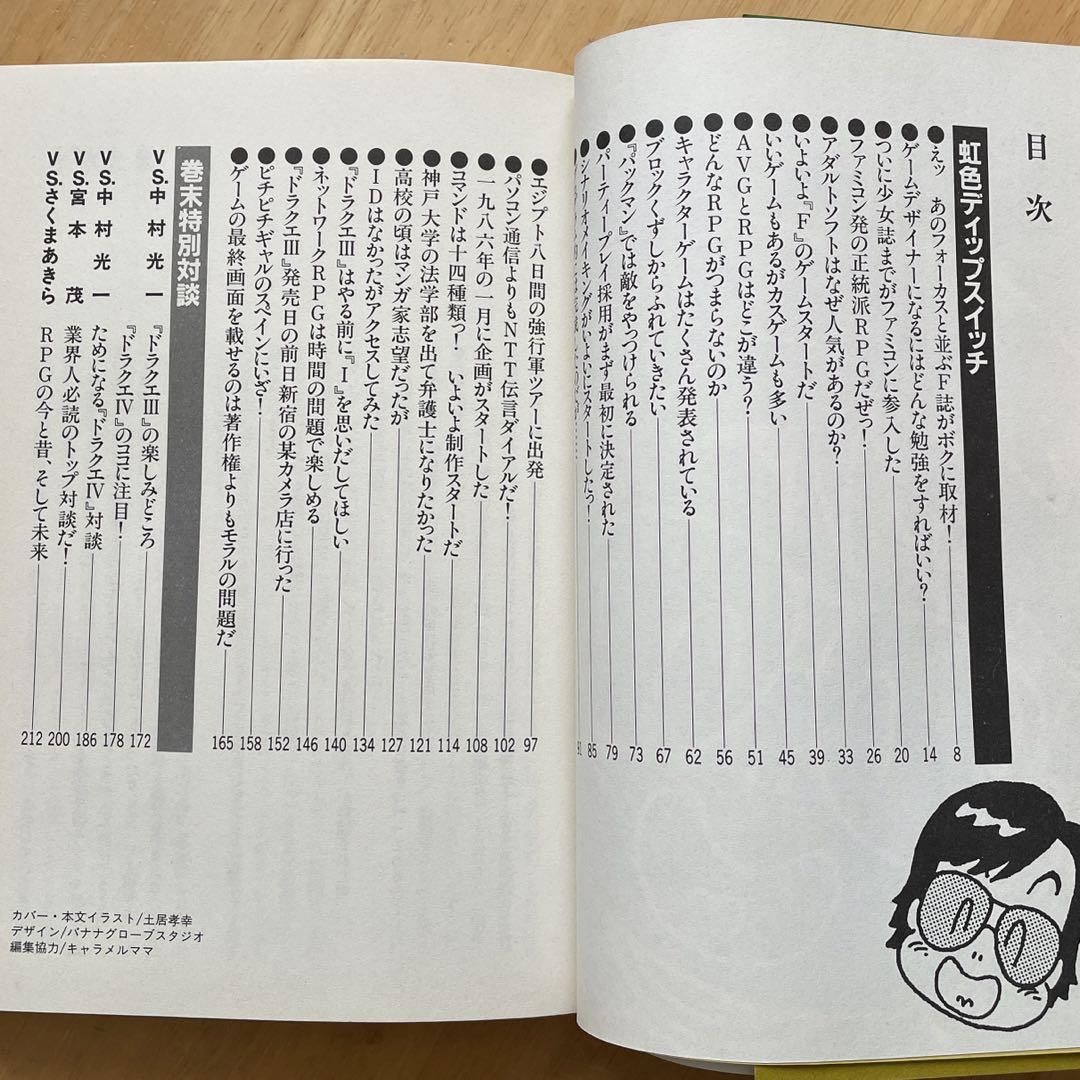 目次
虹色ディップスイッチ
●えッ　あのフォーカスと並ぶF誌がボクに取材！ 8
●ゲームデザイナーになるにはどんな勉強をすればいい？ 14
●ついに少女誌までがファミコンに参入した 20
●ファミコン発の正統派RPGだぜっ！ 26
●アダルトソフトはなぜ人気があるのか？ 33
●いよいよ『F』のゲームスタートだ 39
●いいゲームもあるがカスゲームも多い 45
●AVGとRPGはどこが違う？ 51
●どんなRPGがつまらないのか 56
●キャラクターゲームはたくさん発表されている 62
●ブロックくずしからふれていきたい 67
●『パックマン』では敵をやっつけられる 73
●パーティープレイ採用がまず最初に決定された 79
●シナリオメイキングがいよいよスタートしたっ！ 85
91
●エジプト八日間の強行軍ツアーに出発 97
●パソコン通信よりもNTT伝言ダイアルだ！ 102
●一九八六年の一月に企画がスタートした 108
●コマンドは十四種類っ！　いよいよ制作スタートだ 114
●神戸大学の法学部を出て弁護士になりたかった 121
●高校の頃はマンガ家志望だったが 127
●IDはなかったがアクセスしてみた 134
●『ドラクエIII』はやる前に『I』を思いだしてほしい 140
●ネットワークRPGは時間の問題で楽しめる 146
●『ドラクエIII』発売日の前日新宿の某カメラ店に行った 152
●ピチピチギャルのスペインにいざ！ 158
●ゲームの最終画面を載せるのは著作権よりもモラルの問題だ 165
巻末特別対談
VS.中村光一　『ドラクエIII』の楽しみどころ 172
『ドラクエIV』のココに注目！ 178
VS.中村光一　ためになる『ドラクエIV』対談 186
VS.宮本　茂　業界人必読のトップ対談だ！ 200
VS.さくまあきら　RPGの今と昔、そして未来 212
カバー・本文イラスト/土居孝幸
デザイン/バナナグローブスタジオ
編集協力/キャラメルママ